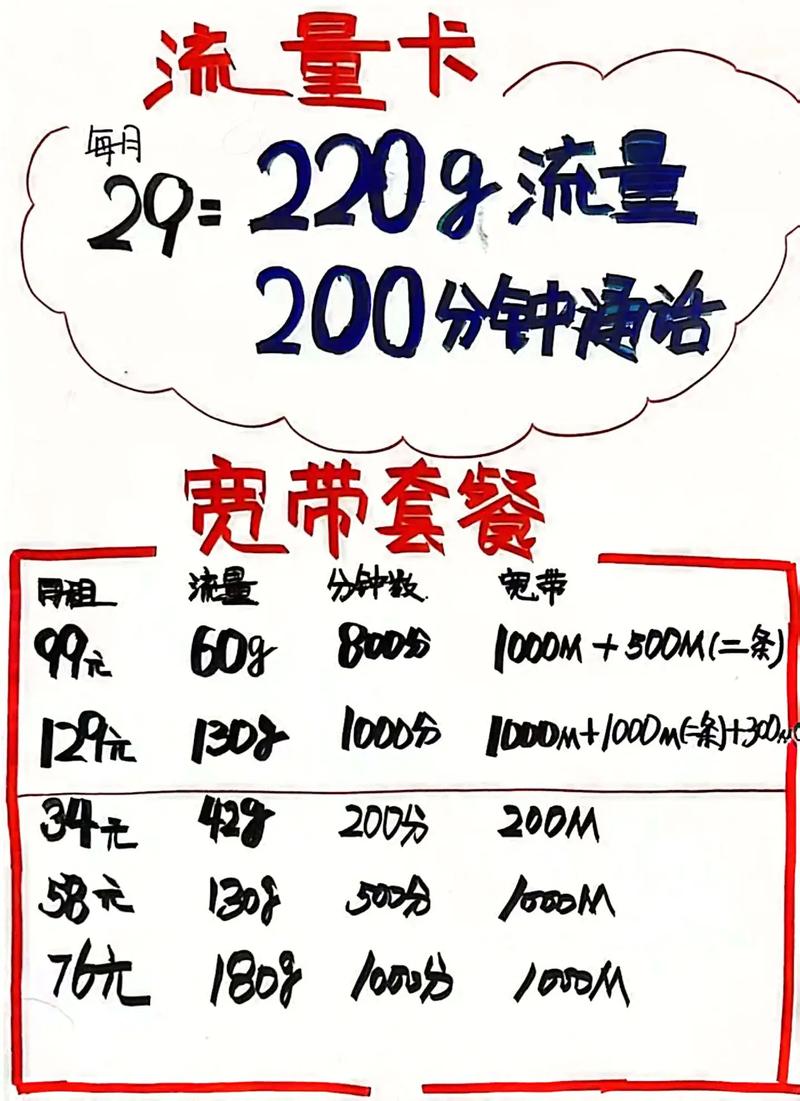 流量卡
每月
29=220g流量
200分钟通话
宽带套餐
月租 流量 分钟数 宽带
99元 60g 800分 1000M+500M(二条)
129元 130g 1000分 1000M+1000M(二条)+300M(
34元 42g 200分 200M
58元 130g 500分 1000M
76元 180g 1000分 1000M